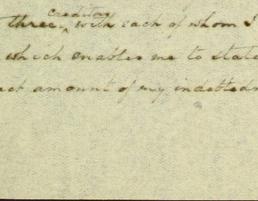 three, creditors with each of whom I
which enables me to state
act amount of my indebtedn